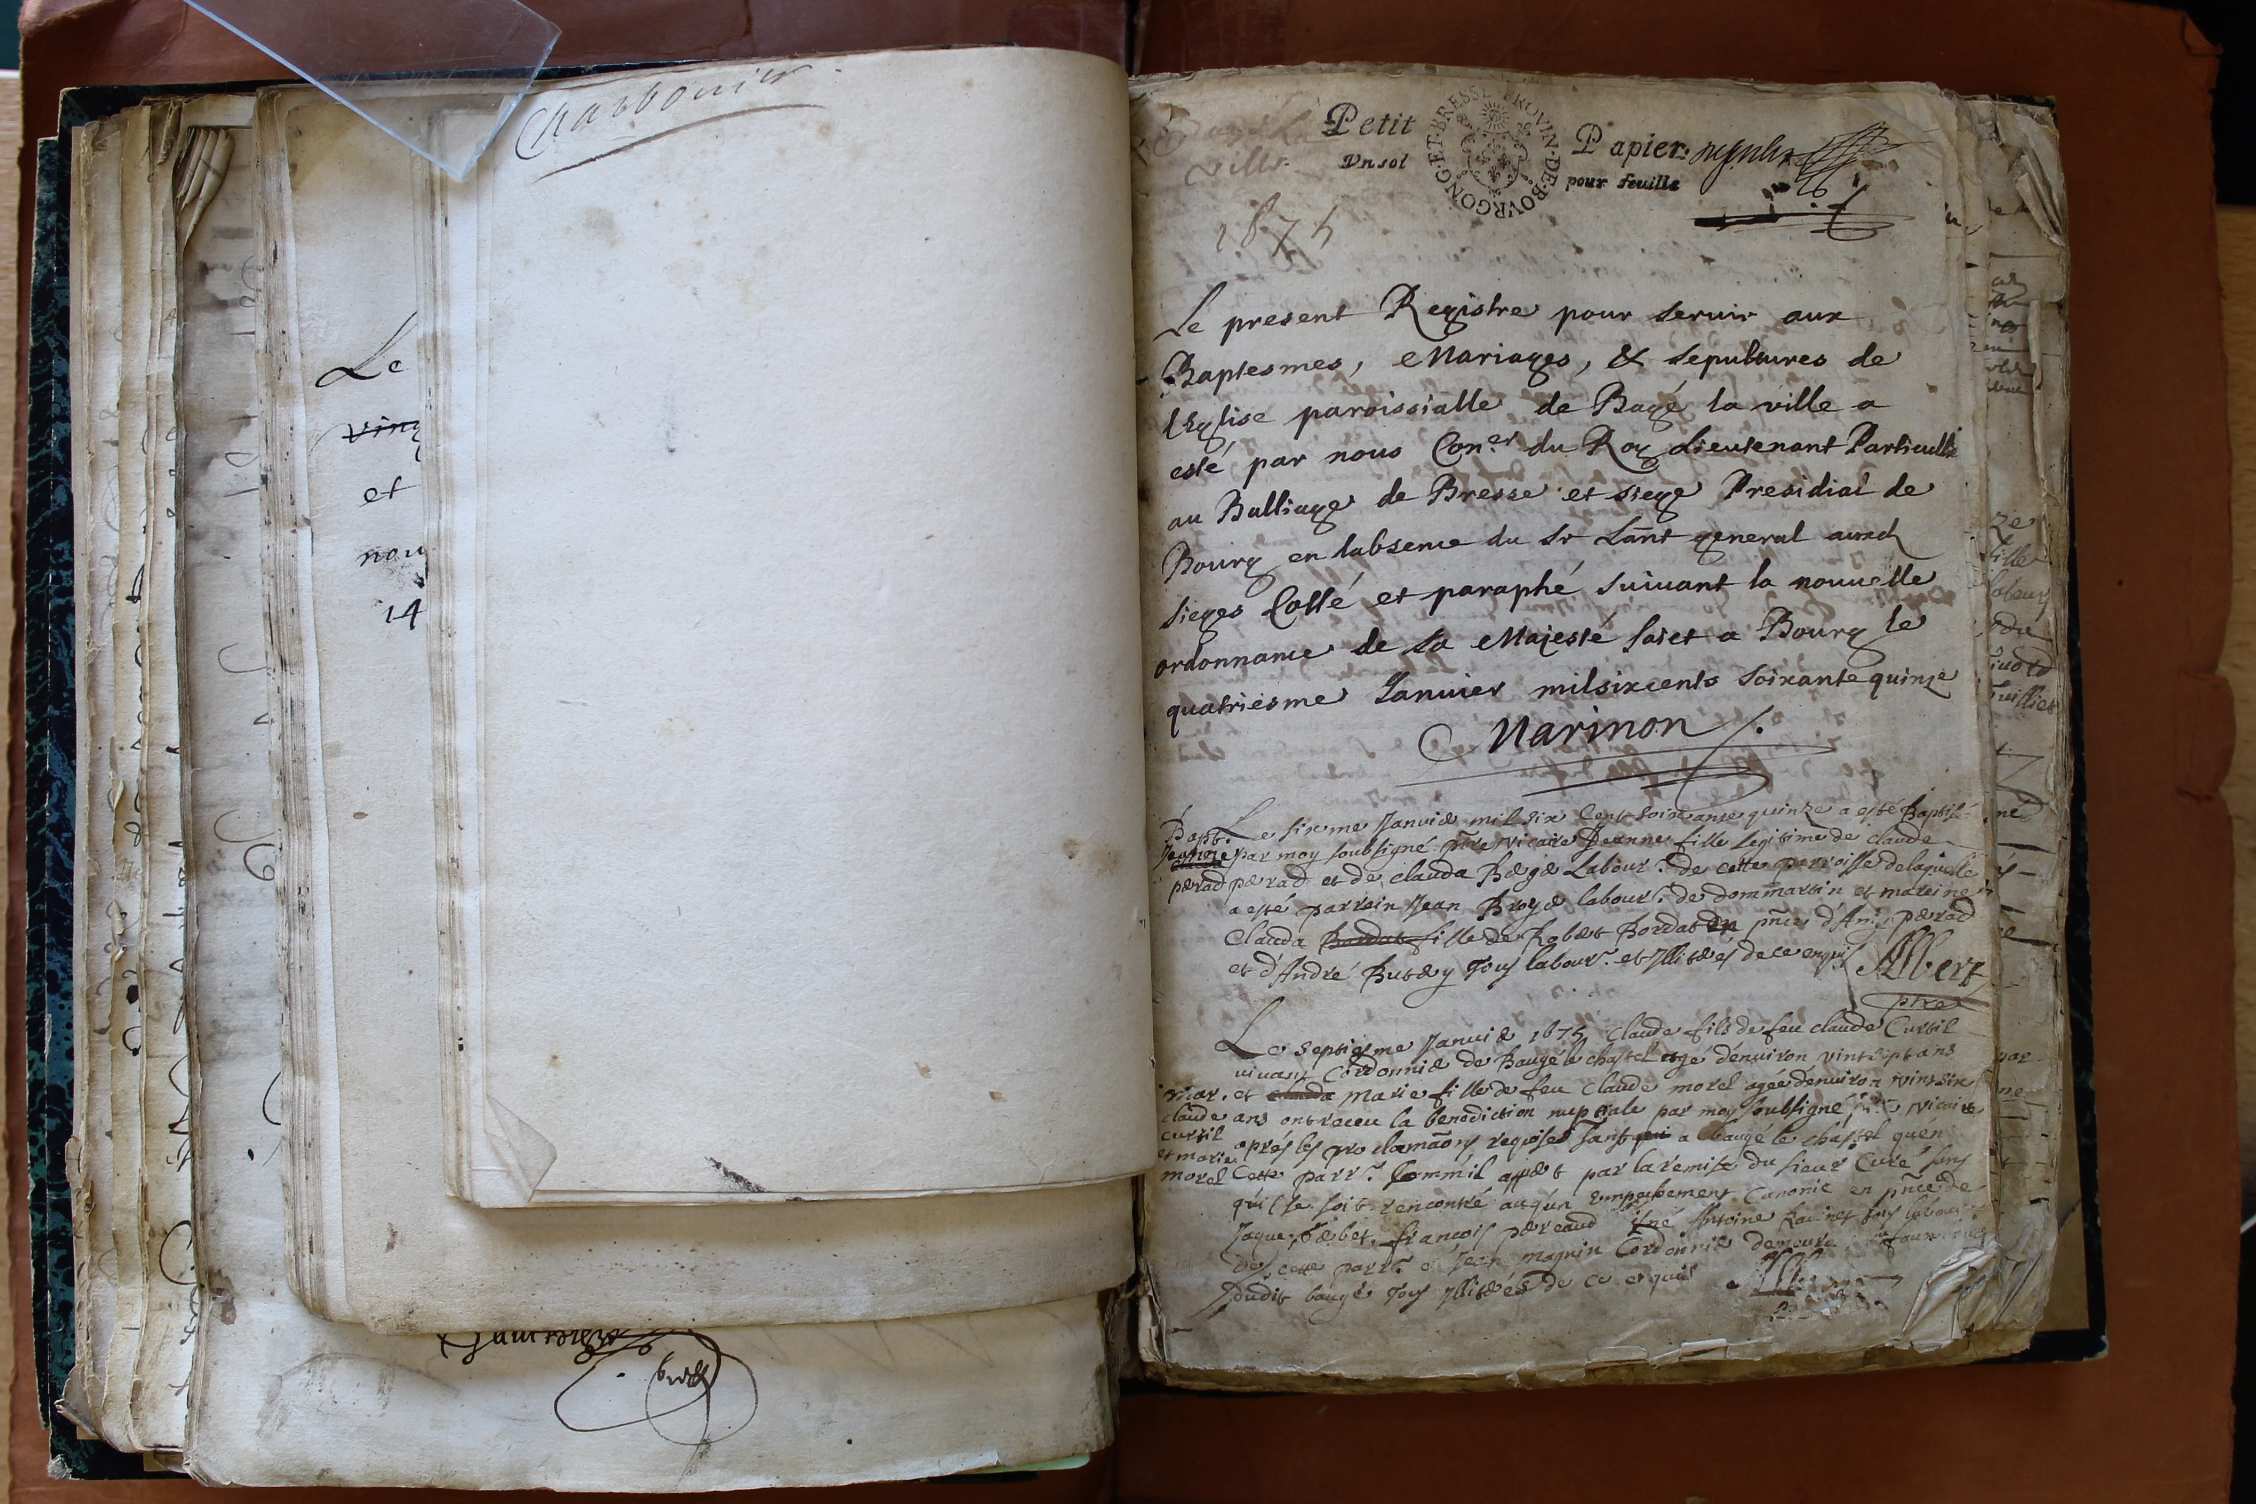 Charbonier
Le
vin
et
nou
14
ville
Petit Papier
Vn sol pour feuille
PROVIN·DE·BOVRGONG·ET·BRESSE
1675
Le present Registre pour seruir aux
Baptesmes, Mariages, & sepultures de
lEglise paroissialle de Bagé la ville a
esté par nous Con.er du Roy Lieutenant Particulle
au Balliage de Bresse et siege Presidial de
Bourg en labsence du Sr Lant general ausd
sieges Cotté et paraphé suiuant la nouuelle
ordonnance de sa Majesté faict a Bourg le
quatriesme Januier milsixcents soixante quinze
Marinon
Bapt.
Jeanne
perad
Le sixme Januie mil six Cent soixante quinze a esté Baptisé
par moy soubsigné pre vicaire Jeanne fille legitime de claude
perad et de clauda Bege Labour. de cette parroisse de laquelle
a esté parrain Jean Broye labour. de dommartin et mareine
Clauda Bordat fille de Robet Bordat en pnce d'An. perad
et d'André Butey Tous labour. et Illiteres de ce enquis Albert
ptre
Le septiesme Januie 1675 Claude fils de feu claude Curtil
viuant Cordonnie de Baugé le chastel agé denuiron vint sept ans
mar.
claude
curtil
et marie
morel
et clauda marie fille de feu Claude morel agée denuiron vint six
ans ont receu la benediction nuptiale par moy soubsigné vicaire
aprés les proclamaons requises Tant a baugé le chastel quen
Cette parr. Comme il appet par la remise du sieur Curé sans
quil se soit rencontré aucun Empechement Canonic en pnce de
Jaque françois pereaud Antoine tous labour
de cette parr. Jean magnin Cordonnie
dudit baugé Tous Illiterés de ce enquis